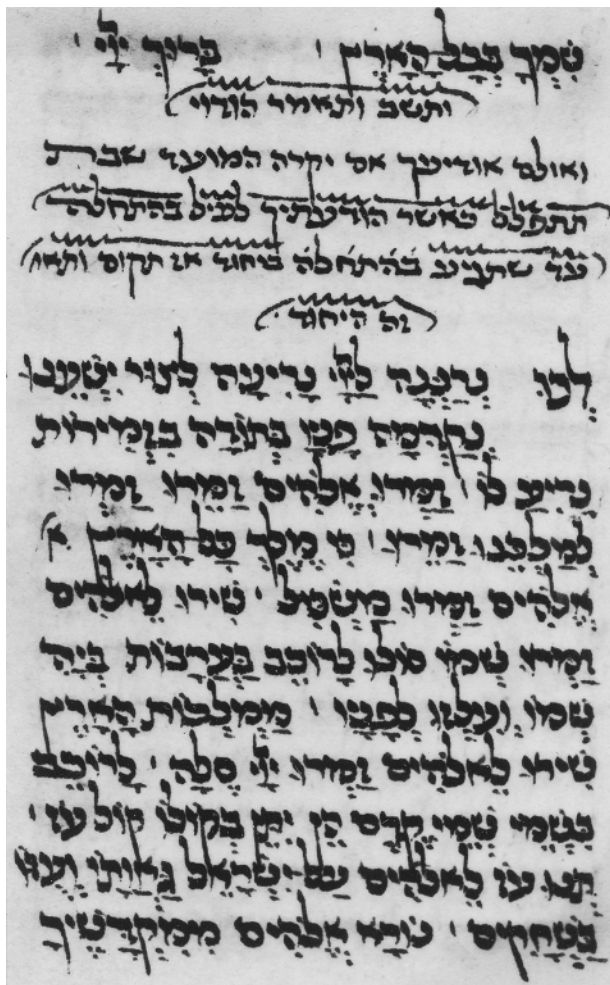 שמך בכל הארץ ׳ ברוך ייי ׳
ותשב ותאמר הודוי
ואולם אודיעך אם יקרה המועד שבת
תתפלל כאשר הודעתיך לעיל בהתחלה
עד שתגיע בהתחלה ביחוד אז תקום ותאו
זה היחוד ׳
לכו נרננה לייי נריעה לצור ישענו
נקדמה פניו בתודה בזמירות
נריע לו ׳ זמרו אלהים זמרו זמרו
למלכנו זמרו ׳ כי מלך כל הארץ א
אלהים זמרו משכיל ׳ שירו לאלהים
זמרו שמו סולו לרוכב בערבות ביה
שמו ועלזו לפניו ׳ ממלכות הארץ
שירו לאלהים זמרו ייי סלה ׳ לרוכב
בשמי שמי קדם הן יתן בקולו קול עז ׳
תנו עז לאלהים על ישראל גאותו ועזו
בשחקים ׳ נורא אלהים ממקדשיך